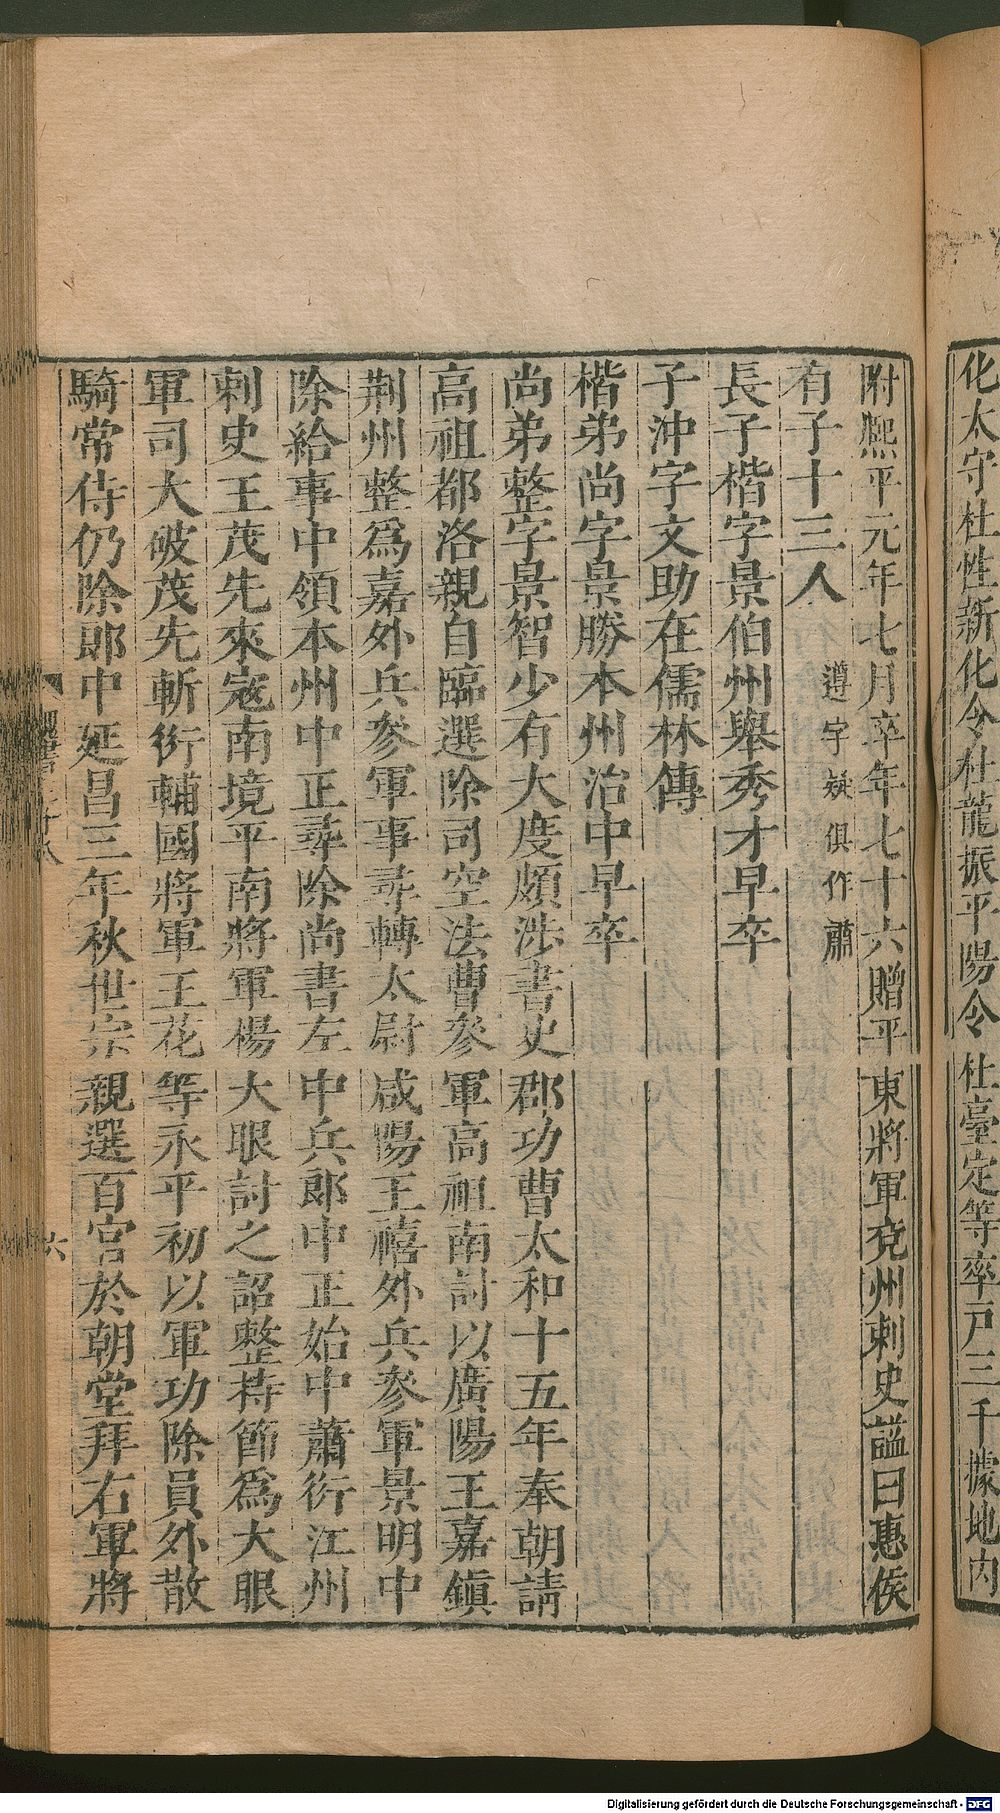 化太守杜性新化令杜龍振平陽令杜臺定等率戸三千據地内
附熙平元年七月卒年七十六贈平東將軍兗州刺史諡曰惠侯
有子十三人
遵字疑俱作肅
長子楷字景伯州舉秀才早卒
子沖字文助在儒林傳
楷弟尚字景勝本州治中早卒
尚弟整字景智少有大度頗涉書史郡功曹太和十五年奉朝請
高祖都洛親自臨選除司空法曹參軍高祖南討以廣陽王嘉鎭
荆州整爲嘉外兵參軍事尋轉太尉咸陽王禧外兵參軍景明中
除給事中領本州中正尋除尚書左中兵郎中正始中蕭衍江州
刺史王茂先來寇南境平南將軍楊大眼討之詔整持節爲大眼
軍司大破茂先斬衍輔國將軍王花等永平初以軍功除員外散
騎常侍仍除郎中延昌三年秋世宗親選百官於朝堂拜右軍將
六
Digitalisierung gefördert durch die Deutsche Forschungsgemeinschaft - DFG